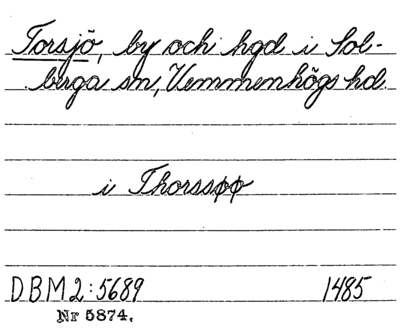 Torsjö, by och hgd i Sol-
berga sn, Vemmenhögs hd.
i Thorssøø
DBM 2:5689 1485
Nr 5874.